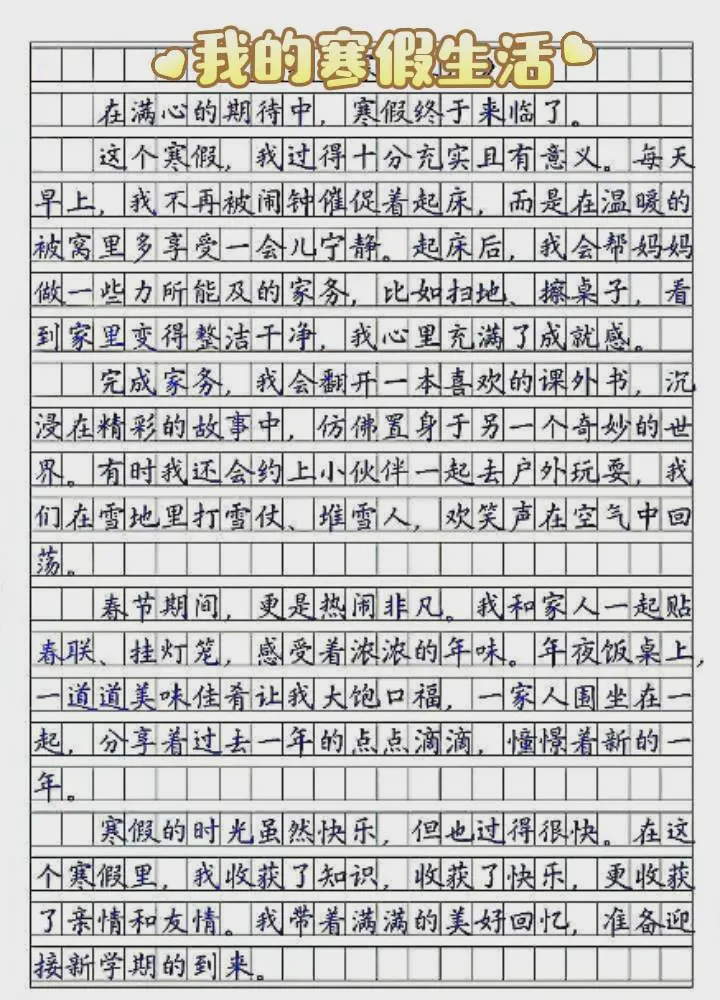 我的寒假生活
在满心的期待中，寒假终于来临了。
这个寒假，我过得十分充实且有意义。每天
早上，我不再被闹钟催促着起床，而是在温暖的
被窝里多享受一会儿宁静。起床后，我会帮妈妈
做一些力所能及的家务，比如扫地、擦桌子，看
到家里变得整洁干净，我心里充满了成就感。
完成家务，我会翻开一本喜欢的课外书，沉
浸在精彩的故事中，仿佛置身于另一个奇妙的世
界。有时我还会约上小伙伴一起去户外玩耍，我
们在雪地里打雪仗、堆雪人，欢笑声在空气中回
荡。
春节期间，更是热闹非凡。我和家人一起贴
春联、挂灯笼，感受着浓浓的年味。年夜饭桌上，
一道道美味佳肴让我大饱口福，一家人围坐在一
起，分享着过去一年的点点滴滴，憧憬着新的一
年。
寒假的时光虽然快乐，但也过得很快。在这
个寒假里，我收获了知识，收获了快乐，更收获
了亲情和友情。我带着满满的美好回忆，准备迎
接新学期的到来。